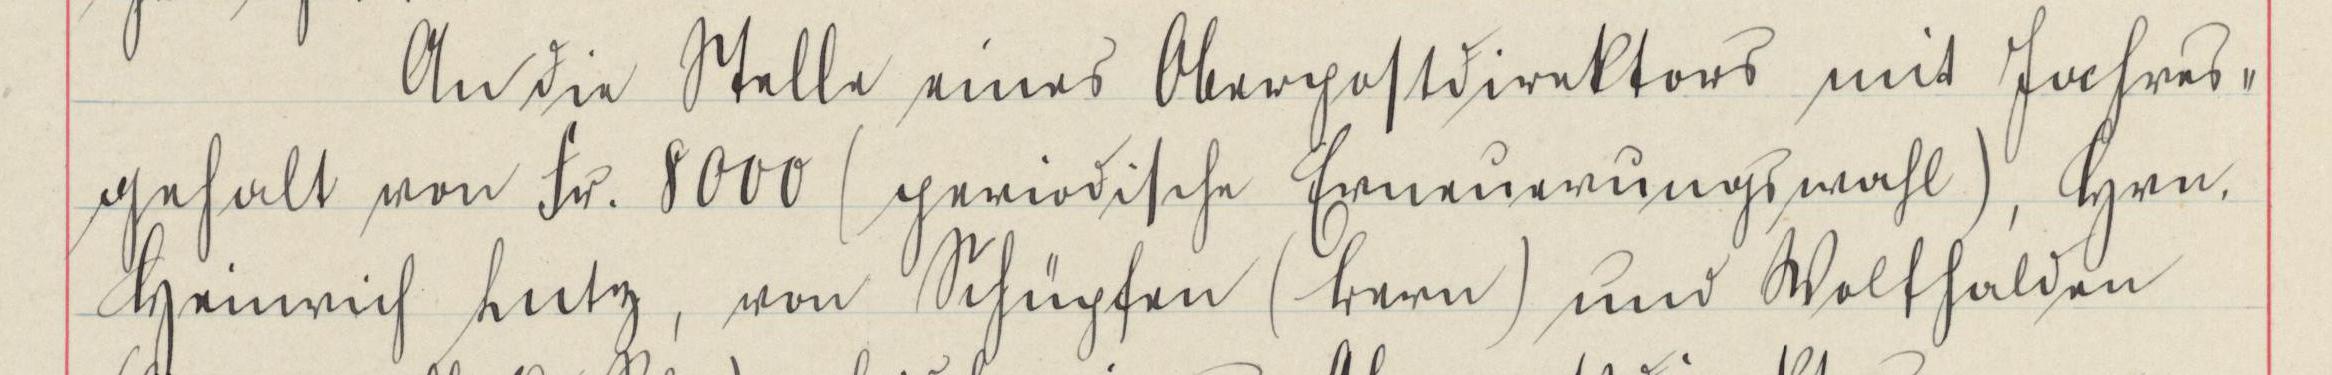 An die Stelle eines Oberpostdirektors mit Jahres-
gehalt von Fr. 8000 (periodische Erneuerungswahl), Hrn.
Heinrich Lutz, von Schüpfen (Bern) und Wolfhalden